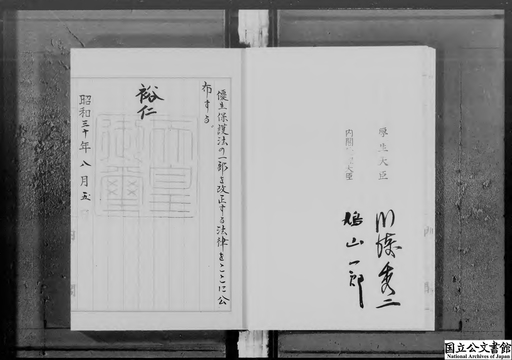 厚生大臣 川崎秀二
内閣総理大臣 鳩山一郎
優生保護法の一部を改正する法律をここに公
布する
裕仁
天皇
御璽
昭和三十年八月五
国立公文書館
National Archives of Japan